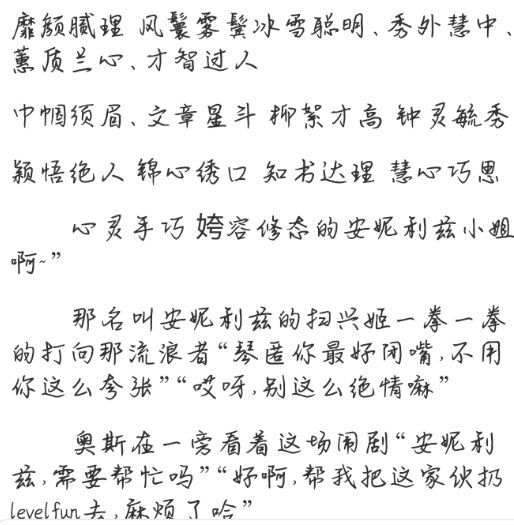 靡颜腻理 风鬟雾鬓冰雪聪明、秀外慧中、
蕙质兰心、才智过人
巾帼须眉、文章星斗 柳絮才高 钟灵毓秀
颖悟绝人 锦心绣口 知书达理 慧心巧思
心灵手巧 姱容修态的安妮利兹小姐
啊~”
那名叫安妮利兹的扫兴姬一拳一拳
的打向那流浪者“琴匿你最好闭嘴,不用
你这么夸张”“哎呀,别这么绝情嘛”
奥斯在一旁看着这场闹剧“安妮利
兹,需要帮忙吗”“好啊,帮我把这家伙扔
levelfun去,麻烦了哈”